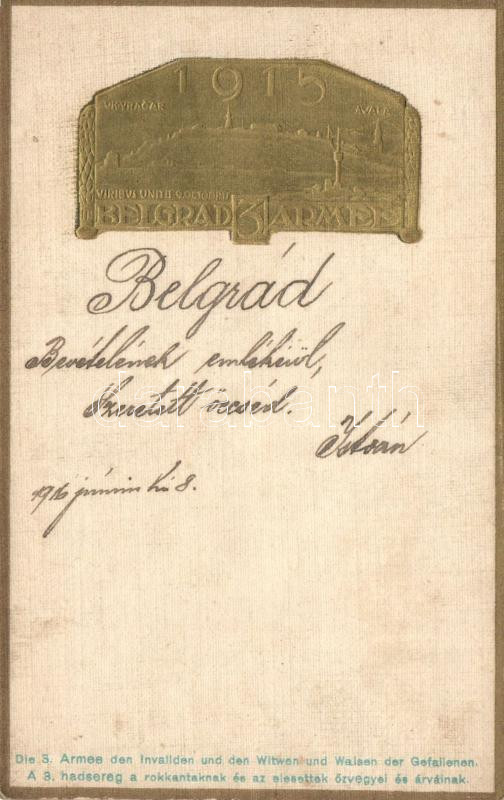 1915
VK.VRAČAR AVALA
VIRIBVS UNITIS 9.OCTOBER 1915
BELGRAD 3 ARMEE
Belgrád
Bevételének emlékéül,
Szeretett öcséd.
István
1916 június hó 8.
darabanth
Die 3. Armee den Invaliden und den Witwen und Waisen der Gefallenen.
A 3. hadsereg a rokkantaknak és az elesettek özvegyei és árváinak.